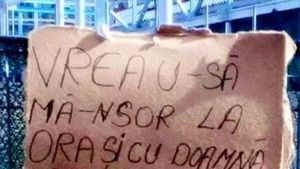 VREAU-SĂ
MĂ-NSOR LA
ORAȘ ȘI CU DOAMNĂ